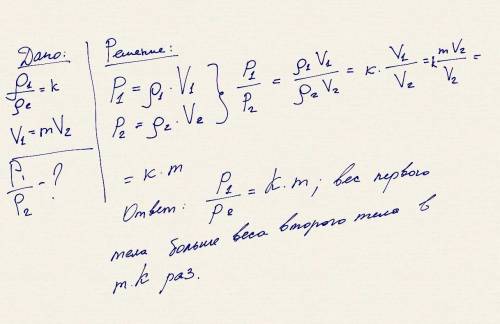 Дано:
ρ1/ρ2 = k
V1 = mV2
P1/P2 - ?
Решение:
P1 = ρ1 · V1
P2 = ρ2 · V2
P1/P2 = ρ1 V1/ρ2 V2 = k · V1/V2 = k mV2/V2 =
= k · m
Ответ: P1/P2 = k · m; вес первого
тела больше веса второго тела в
m.k раз.